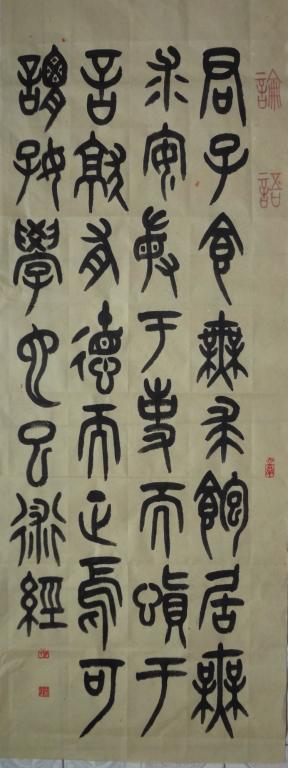 論語
君子食無求飽居無
求安敏于事而慎于
言就有德而正焉可
謂好學也已經